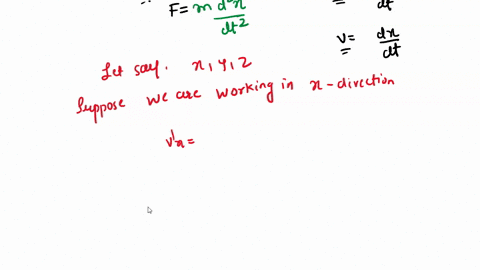 F = m d²x/dt²
dt
v = dx/dt
Let say. x, y, z
Suppose we are working in x-direction
v'x =